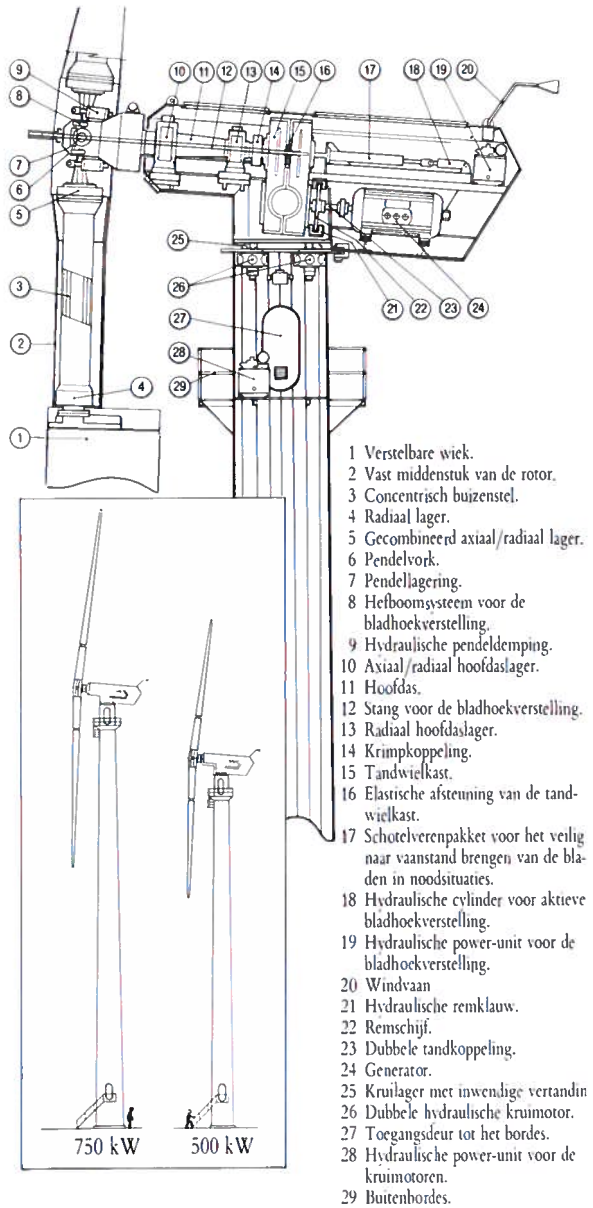 10 11 12 13 14 15 16 17 18 19 20
9
8
7
6
5
25
26
3
21 22 23 24
27
2
28
4
29
1
1 Verstelbare wiek.
2 Vast middenstuk van de rotor.
3 Concentrisch buizenstel.
4 Radiaal lager.
5 Gecombineerd axiaal/radiaal lager.
6 Pendelvork.
7 Pendellagering.
8 Hefboomsysteem voor de
bladhoekverstelling.
9 Hydraulische pendeldemping.
10 Axiaal/radiaal hoofdaslager.
11 Hoofdas.
12 Stang voor de bladhoekverstelling.
13 Radiaal hoofdaslager.
14 Krimpkoppeling.
15 Tandwielkast.
16 Elastische afsteuning van de tand-
wielkast.
17 Schotelverenpakket voor het veilig
naar vaanstand brengen van de bla-
den in noodsituaties.
18 Hydraulische cylinder voor aktieve
bladhoekverstelling.
19 Hydraulische power-unit voor de
bladhoekverstelling.
20 Windvaan
21 Hydraulische remklauw.
22 Remschijf.
23 Dubbele tandkoppeling.
24 Generator.
25 Kruilager met inwendige vertandin
26 Dubbele hydraulische kruimotor.
27 Toegangsdeur tot het bordes.
28 Hydraulische power-unit voor de
kruimotoren.
29 Buitenbordes.
750 kW 500 kW